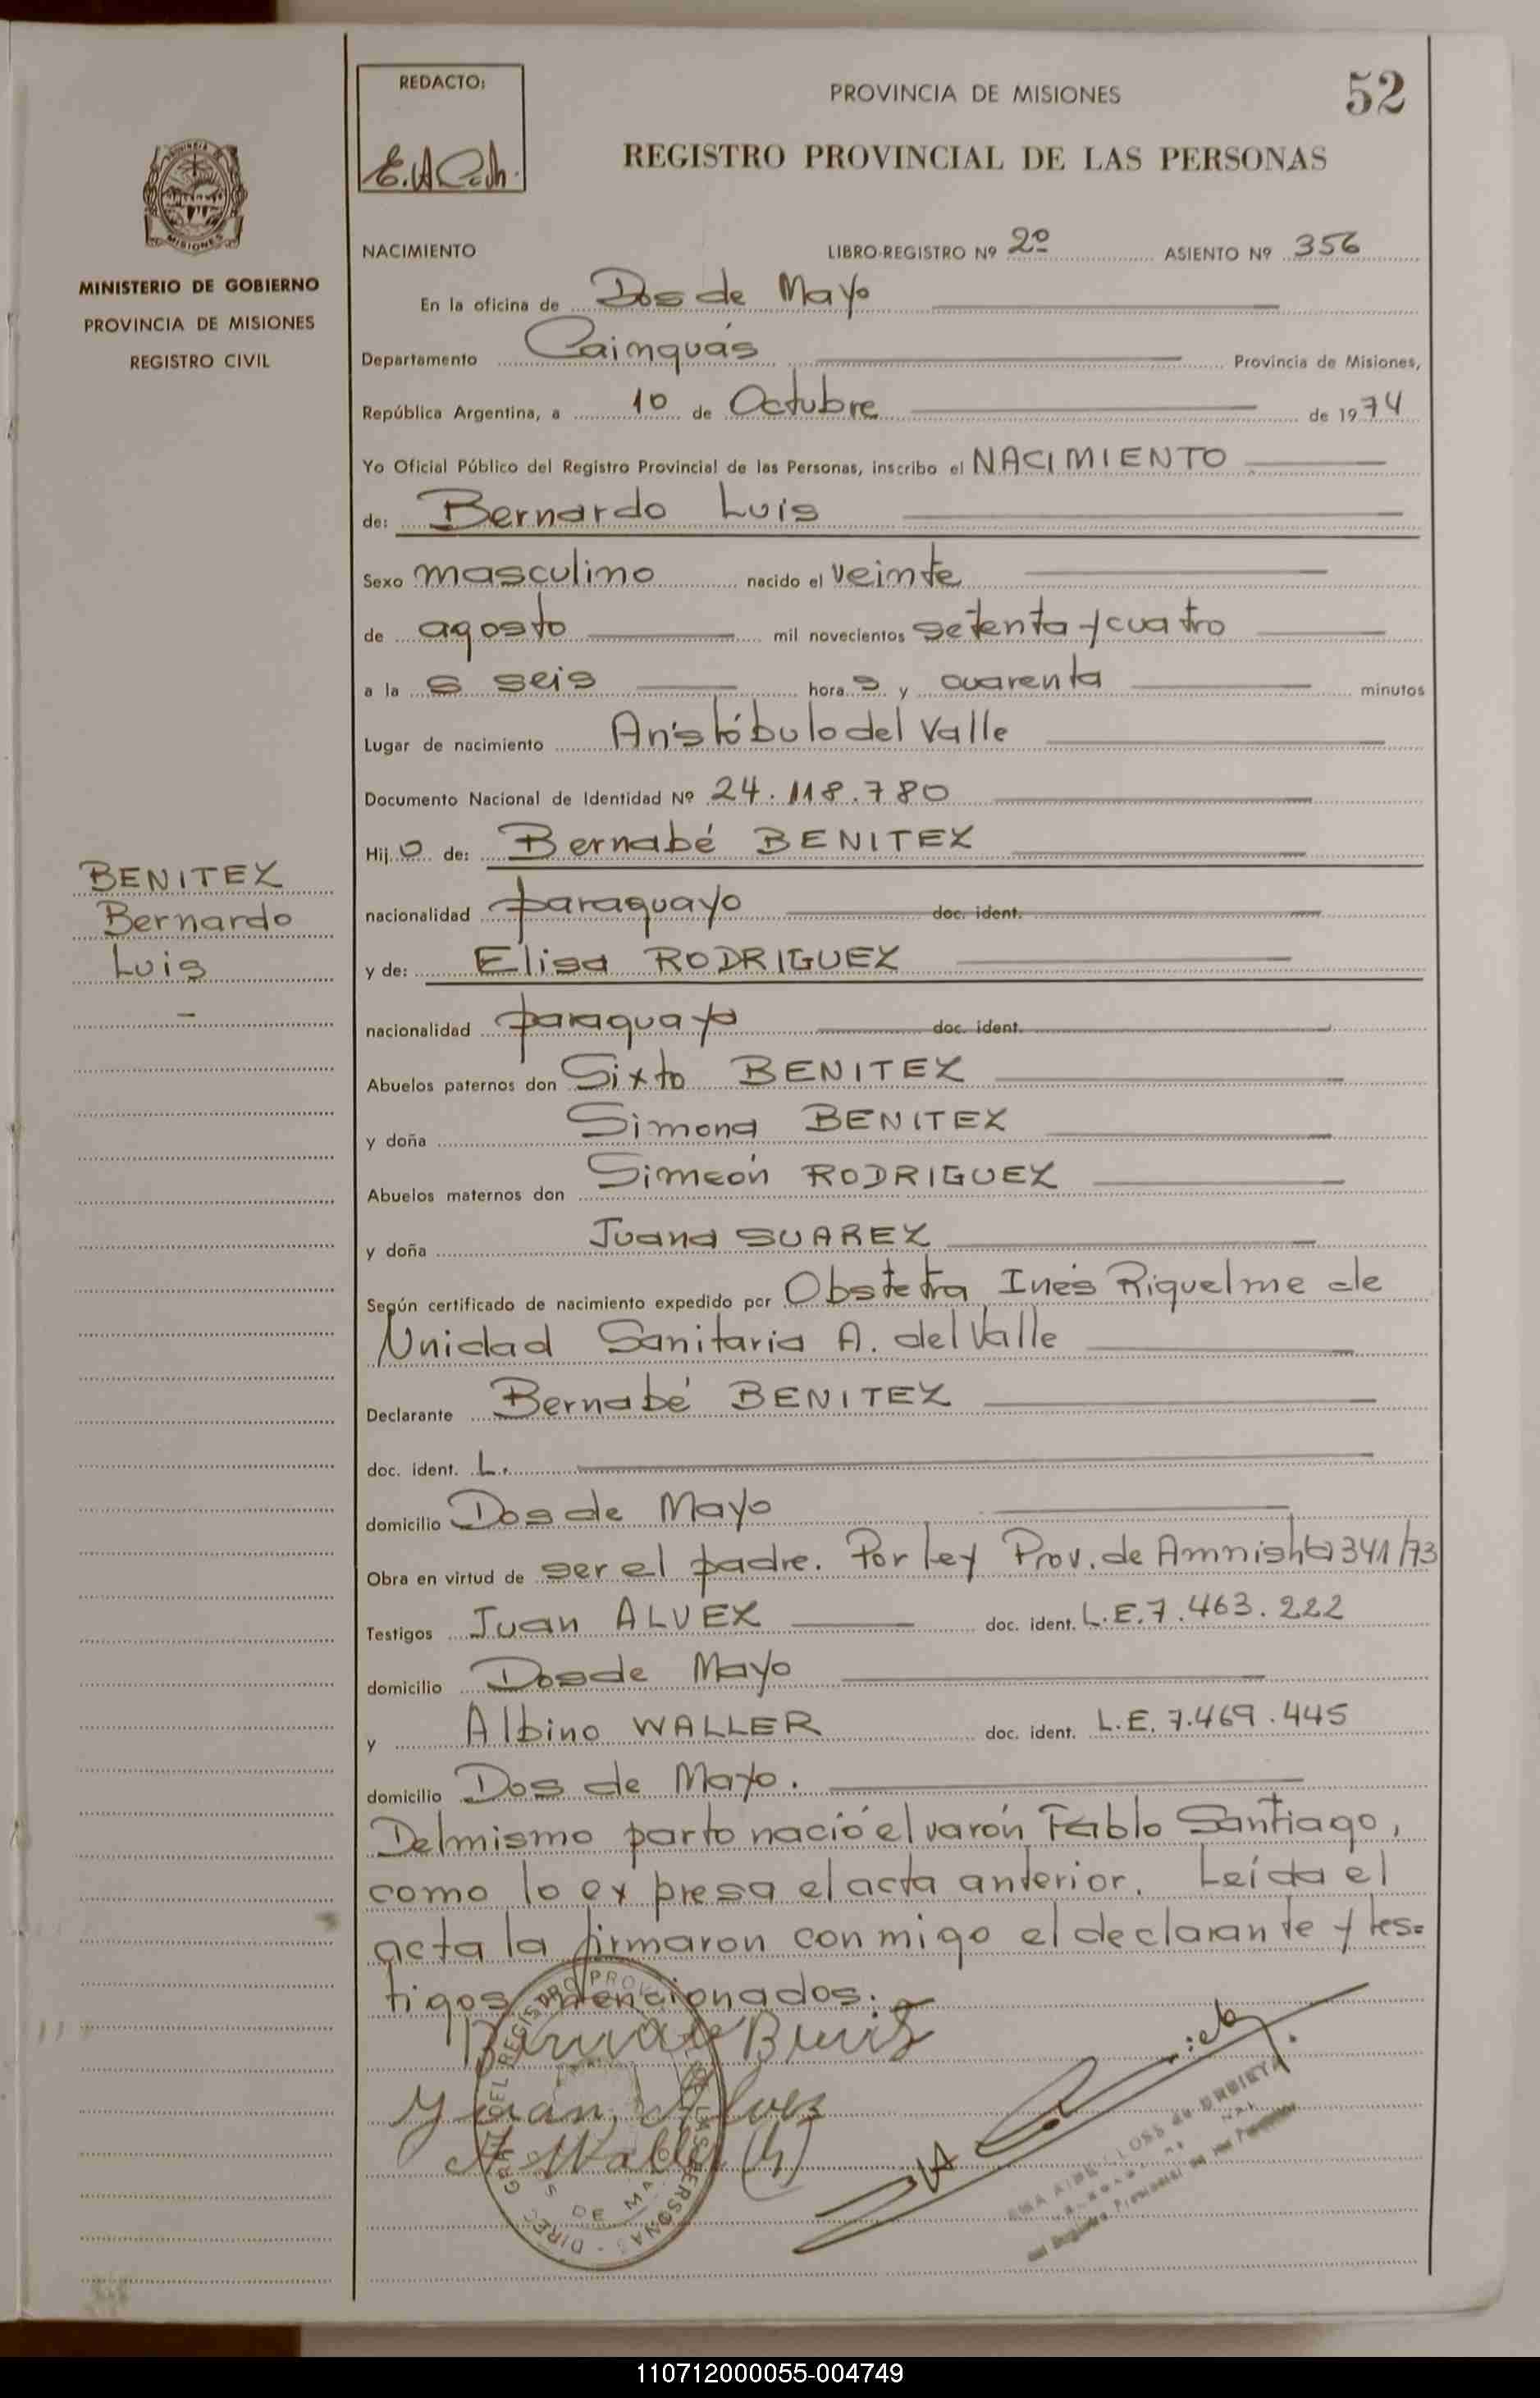 REDACTO:
PROVINCIA DE MISIONES
52
REGISTRO PROVINCIAL DE LAS PERSONAS
MISIONES
MINISTERIO DE GOBIERNO
PROVINCIA DE MISIONES
REGISTRO CIVIL
NACIMIENTO LIBRO-REGISTRO Nº 2º ASIENTO Nº 356
En la oficina de Dos de Mayo
Departamento Cainguás Provincia de Misiones,
República Argentina, a 10 de Octubre de 1974
Yo Oficial Público del Registro Provincial de las Personas, inscribo el NACIMIENTO
de: Bernardo Luis
Sexo masculino nacido el veinte
de agosto mil novecientos setenta y cuatro
a la s seis hora s y cuarenta minutos
Lugar de nacimiento Aristóbulo del Valle
Documento Nacional de Identidad Nº 24.118.780
Hij o de: Bernabé BENITEZ
BENITEZ
Bernardo
Luis
nacionalidad paraguayo doc. ident.
y de: Elisa RODRIGUEZ
nacionalidad paraguaya doc. ident.
Abuelos paternos don Sixto BENITEZ
y doña Simona BENITEZ
Abuelos maternos don Simeón RODRIGUEZ
y doña Juana SUAREZ
Según certificado de nacimiento expedido por Obstetra Inés Riquelme de
Unidad Sanitaria A. del Valle
Declarante Bernabé BENITEZ
doc. ident. L.
domicilio Dos de Mayo
Obra en virtud de ser el padre. Por Ley Prov. de Amnistía 341/73
Testigos Juan ALVEZ doc. ident. L.E. 7.463.222
domicilio Dos de Mayo
y Albino WALLER doc. ident. L.E. 7.469.445
domicilio Dos de Mayo.
Del mismo parto nació el varón Pablo Santiago,
como lo expresa el acta anterior. Leída el
acta la firmaron conmigo el declarante y tes=
tigos mencionados.
Juan Alvez
A Waller (h)
110712000055-004749